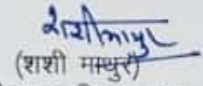 शशी माथुर
(शशी माथुर)